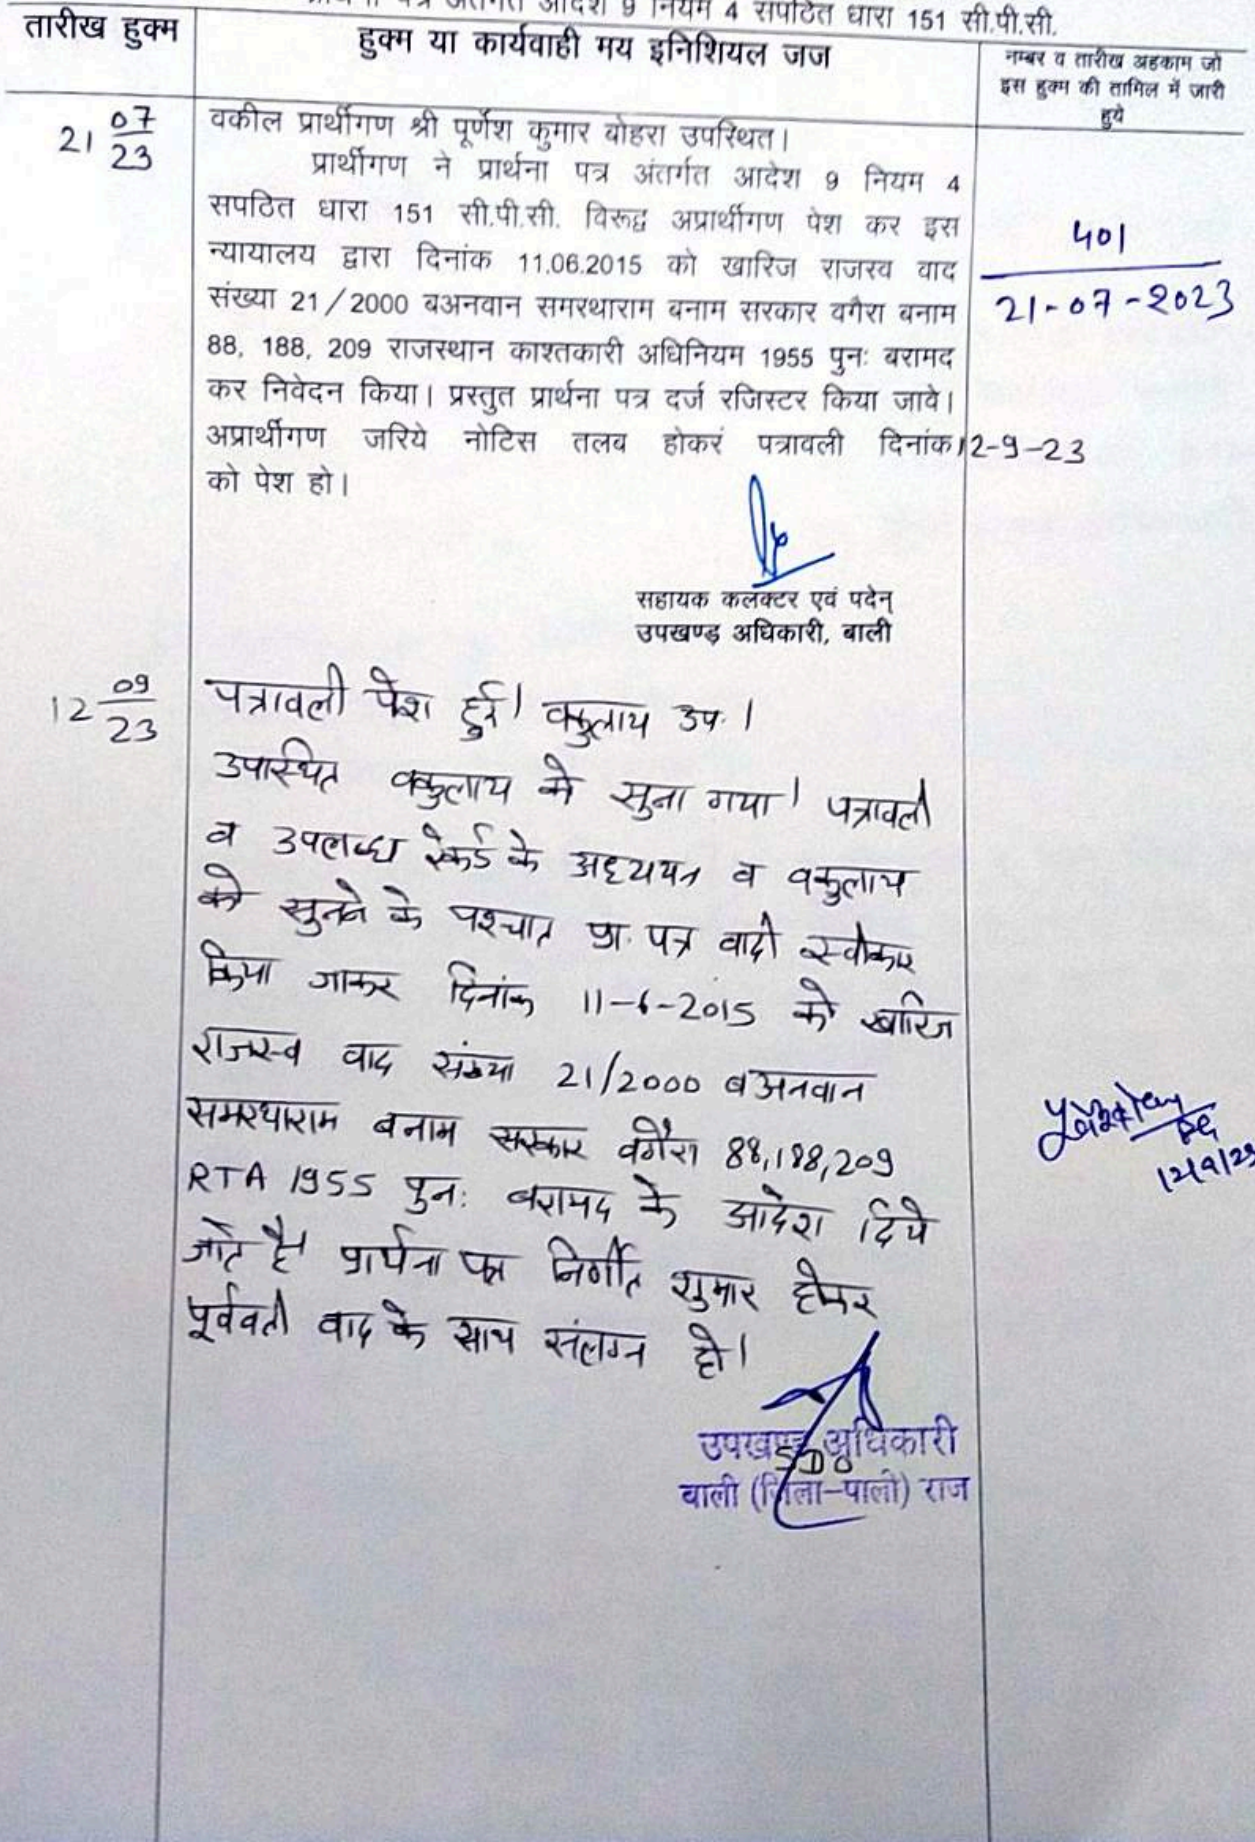 पत्र अंतर्गत आदेश 9 नियम 4 सपठित धारा 151 सी.पी.सी.
तारीख हुक्म
हुक्म या कार्यवाही मय इनिशियल जज
नम्बर व तारीख अहकाम जो
इस हुक्म की तामिल में जारी
हुये
21 07/23
वकील प्रार्थीगण श्री पूर्णेश कुमार बोहरा उपस्थित।
प्रार्थीगण ने प्रार्थना पत्र अंतर्गत आदेश 9 नियम 4
सपठित धारा 151 सी.पी.सी. विरूद्व अप्रार्थीगण पेश कर इस
न्यायालय द्वारा दिनांक 11.06.2015 को खारिज राजस्व वाद
संख्या 21/2000 बअनवान समरथाराम बनाम सरकार वगैरा बनाम
88, 188, 209 राजस्थान काश्तकारी अधिनियम 1955 पुनः बरामद
कर निवेदन किया। प्रस्तुत प्रार्थना पत्र दर्ज रजिस्टर किया जावे।
अप्रार्थीगण जरिये नोटिस तलब होकरं पत्रावली दिनांक 12-9-23
को पेश हो।
401
21-07-2023
सहायक कलक्टर एवं पदेन्
उपखण्ड़ अधिकारी, बाली
12 09/23
पत्रावली पेश हुई। वकुलाय उप.।
उपास्थित वकुलाय को सुना गया। पत्रावली
व उपलब्ध रेकर्ड के अध्ययन व वकुलाय
को सुनने के पश्चात प्रा. पत्र वादी स्वीकार
किया जाकर दिनांक 11-6-2015 को खारिज
राजस्व वाद संख्या 21/2000 बअनवान
समरथाराम बनाम सरकार वगैरा 88,188,209
RTA 1955 पुन: बरामद के आदेश दिये
जाते है। प्रार्थना पत्र निर्णीत शुमार होकर
पूर्ववर्ती वाद के साथ संलग्न हो।
12/9/23
उपखण्ड अधिकारी
SDO
बाली (जिला-पाली) राज